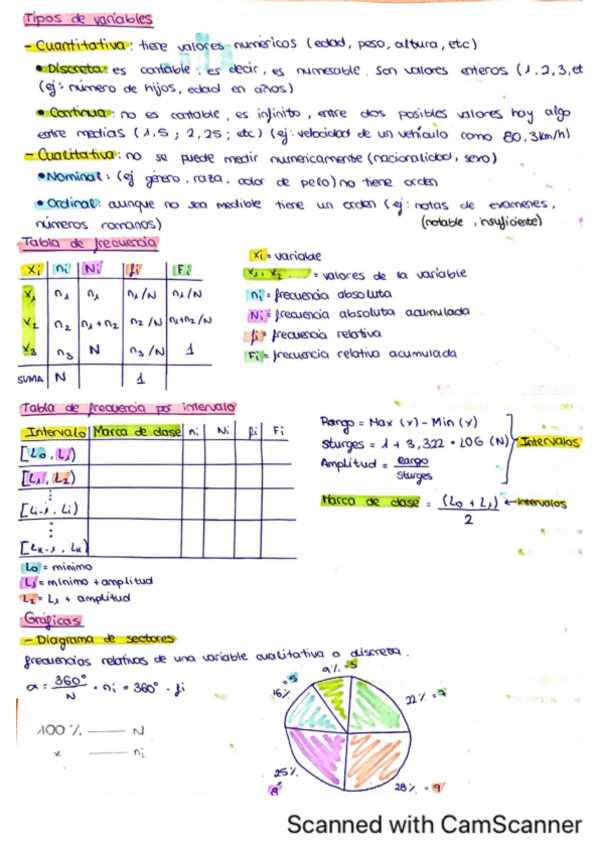 Tipos de variables
- Cuantitativa: tiene valores numéricos (edad, peso, altura, etc)
• Discreta: es contable, es decir, es numerable. Son valores enteros (1,2,3,et
(ej: número de hijos, edad en años)
• Continua: no es contable, es infinito, entre dos posibles valores hay algo
entre medias (1,5; 2,25; etc) (ej: velocidad de un vehículo como 80,3km/h)
- Cualitativa: no se puede medir numericamente (nacionalidad, sexo)
• Nominal: (ej género, raza, color de pelo) no tiene orden
• Ordinal: aunque no sea medible tiene un orden (ej: notas de examenes,
números romanos) (notable, insuficiente)
Tabla de frecuencia
Xi ni Ni fi Fi
X1 n1 n1 n1/N n1/N
X2 n2 n1+n2 n2/N n1+n2/N
X3 n3 N n3/N 1
SUMA N 1
Xi = variable
X1, X2... = valores de la variable
ni = frecuencia absoluta
Ni = frecuencia absoluta acumulada
fi = frecuencia relativa
Fi = frecuencia relativa acumulada
Tabla de frecuencia por intervalo
Intervalo Marca de clase ni Ni fi Fi
[L0, L1)
[L1, L2)
⋮
[Li-1, Li)
⋮
[Lk-1, Lk)
Rango = Max (x) - Min (x)
Sturges = 1 + 3,322 • LOG (N)
Amplitud = Rango / Sturges
Intervalos
Marca de clase = (L0 + L1) / 2 ← intervalos
L0 = mínimo
L1 = mínimo + amplitud
L2 = L1 + amplitud
Gráficas
- Diagrama de sectores
frecuencias relativas de una variable cualitativa o discreta.
α = 360° / N • ni = 360° • fi
100% —— N
x —— ni
9% = 3
16% = 5
22% = 7
25%
8
28% = 9
Scanned with CamScanner